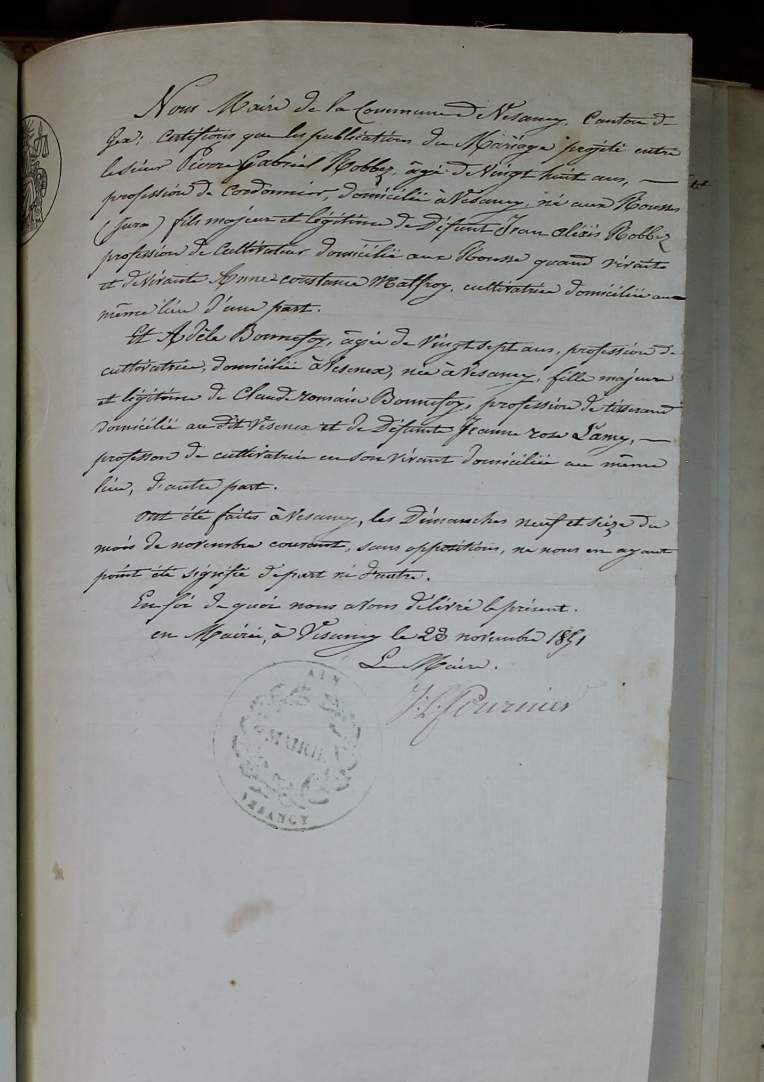 Nous Maire de la Commune de Vesancy, Canton de
Gex; certifions que les publications du Mariage projeté entre
le sieur Pierre Gabriel Robbez, âgé de Vingt huit ans, —
profession de Cordonnier, domicilié à Vesancy, né aux Rousses
(Jura) fils majeur et légitime de Défunt Jean Aléxis Robbez
profession de Cultivateur domicilié aux Rousse quand vivait
et de Vivante Anne-constance Malfroy, cultivatrice domiciliée au
même lieu d'une part.
Et Adèle Bonnefoy, âgée de Vingt sept ans, profession de
cultivatrice, domiciliée à Vesenex, née à Vesancy, fille majeure
et légitime de Claude romain Bonnefoy, profession de tisserand
domicilié au dit Vesenex et de Défunte Jeanne rose Lamy, —
professon de cultivatrice en son vivant domiciliée au même
lieu, d'autre part.
Ont été faites à Vesancy, les Dimanches neuf et seize du
mois de novembre courant, sans oppositions, ne nous en ayant
point été signifié d'part ni d'autre.
En foi de quoi nous avons délivré le présent.
en Mairie, à Vesancy le 23 novembre 1851
Le Maire.
J: L: Fournier
AIN
MAIRIE
VESANCY